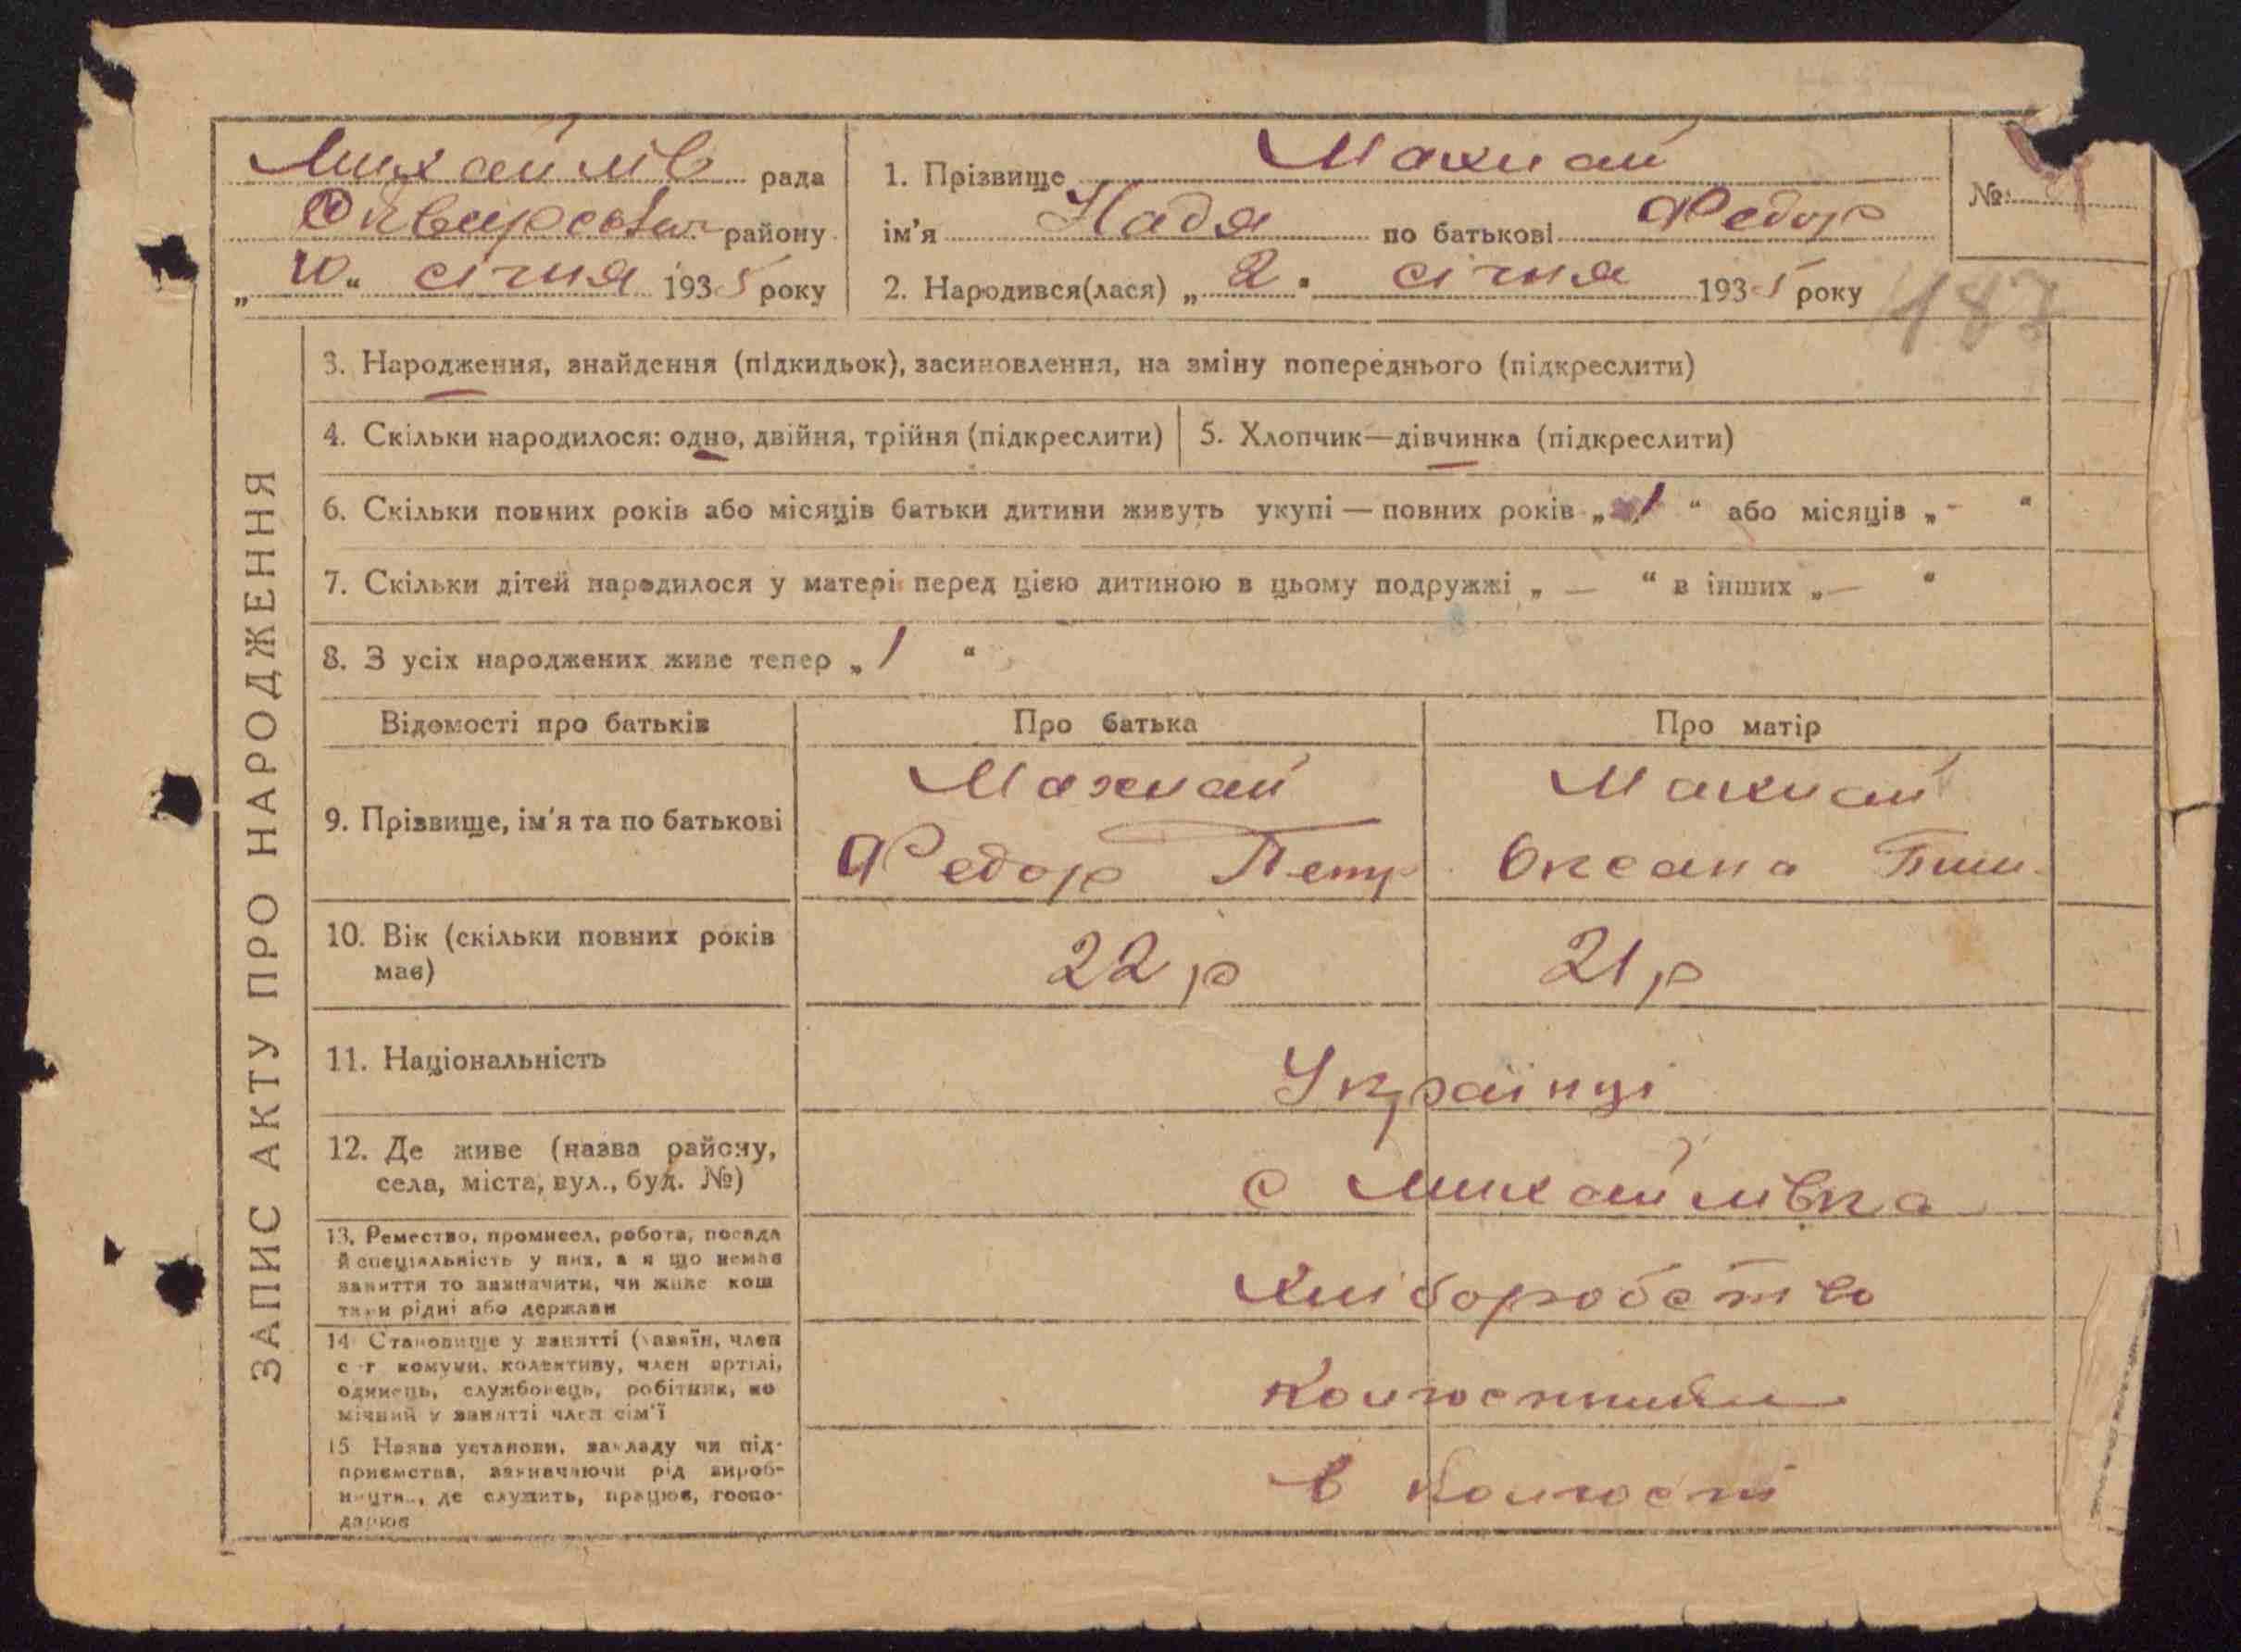 Михайлів рада
району
„10“ січня 1935 року
1. Прізвище Махнай
ім'я Надя по батькові Федор
2. Народився(лася) „2“ січня 1935 року
№
187
ЗАПИС АКТУ ПРО НАРОДЖЕННЯ
3. Народження, знайдення (підкидьок), засиновлення, на зміну попереднього (підкреслити)
4. Скільки народилося: одно, двійня, трійня (підкреслити)
5. Хлопчик—дівчинка (підкреслити)
6. Скільки повних років або місяців батьки дитини живуть укупі — повних років „1“ або місяців „-“
7. Скільки дітей народилося у матері перед цією дитиною в цьому подружжі „—“ в інших „—“
8. З усіх народжених живе тепер „1“
Відомості про батьків Про батька Про матір
9. Прізвище, ім'я та по батькові
Махнай
Федор Петр
Махнай
Оксана
10. Вік (скільки повних років
має)
22 р
21 р
11. Національність
Українці
12. Де живе (назва району,
села, міста, вул., буд. №)
с Михайлівка
13. Ремество, промисел, робота, посада
й спеціяльність у них, а я що немає
заняття то зазначити, чи живе кош
тами рідні або держави
Хліборобство
14 Становище у занятті (хазяїн, член
с-г комуни, колективу, член артілі,
одинець, службовець, робітник, по
мічний у занятті член сім'ї
15 Назва установи, закладу чи під-
приємства, зазначаючи рід вироб-
ництва, де служить, працює, госпо-
дарює
в колгоспі